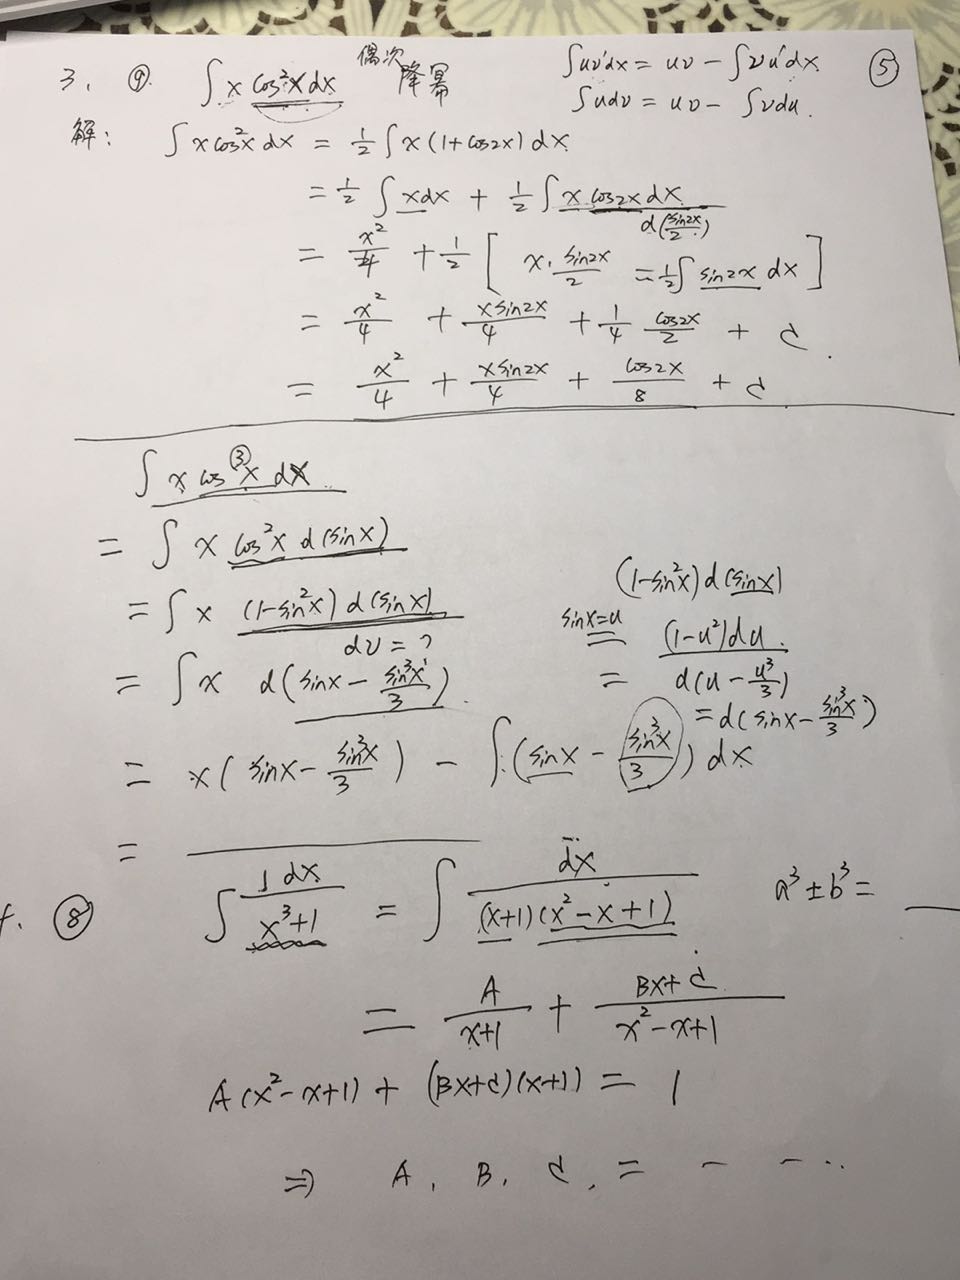 3. ⑨. ∫ x cos²x dx 偶次降幂 ∫uv'dx = uv − ∫vu'dx. ⑤
∫udv = uv − ∫vdu.
解: ∫ x cos²x dx = 1/2 ∫ x (1+cos2x) dx.
= 1/2 ∫ x dx + 1/2 ∫ x cos2x dx.
d(sin2x/2)
= x²/4 + 1/2 [ x · sin2x/2 = 1/2 ∫ sin2x dx ]
= x²/4 + xsin2x/4 + 1/4 cos2x/2 + c.
= x²/4 + xsin2x/4 + cos2x/8 + c
∫ x cos³x dx
= ∫ x cos²x d(sinx)
(1−sin²x) d(sinx)
= ∫ x (1−sin²x) d(sinx)
dv = ?
sinx=u = (1−u²)du.
= ∫ x d(sinx − sin³x/3).
= d(u − u³/3)
= d(sinx − sin³x/3)
= x(sinx − sin³x/3) − ∫(sinx − sin³x/3) dx
=
⑧ ∫ 1 dx/(x³+1) = ∫ dx/((x+1)(x²−x+1)) a³±b³=
= A/(x+1) + (Bx+c)/(x²−x+1)
A(x²−x+1) + (Bx+c)(x+1) = 1
⇒ A, B, c, = − − ..